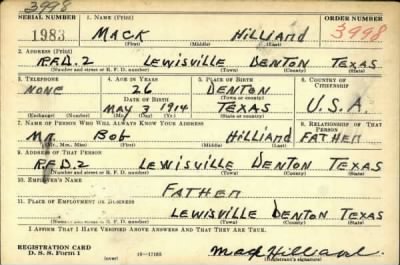 3998
SERIAL NUMBER 1. NAME (Print) ORDER NUMBER
1983 MACK HILLIARD 3998
(First) (Middle) (Last)
2. ADDRESS (Print)
R.F.D. 2 LEWISVILLE DENTON TEXAS
(Number and street or R. F. D. number) (Town) (County) (State)
3. TELEPHONE 4. AGE IN YEARS 5. PLACE OF BIRTH 6. COUNTRY OF CITIZENSHIP
NONE 26 DENTON
DATE OF BIRTH (Town or county)
MAY 3 1914 TEXAS U.S.A.
(Exchange) (Number) (Mo.) (Day) (Yr.) (State or country)
7. NAME OF PERSON WHO WILL ALWAYS KNOW YOUR ADDRESS 8. RELATIONSHIP OF THAT PERSON
MR. BOB HILLIARD FATHER
(Mr., Mrs., Miss) (First) (Middle) (Last)
9. ADDRESS OF THAT PERSON
R.F.D. 2 LEWISVILLE DENTON TEXAS
(Number and street or R. F. D. number) (Town) (County) (State)
10. EMPLOYER'S NAME
FATHER
11. PLACE OF EMPLOYMENT OR BUSINESS
LEWISVILLE DENTON TEXAS
(Number and street or R. F. D. number) (Town) (County) (State)
I AFFIRM THAT I HAVE VERIFIED ABOVE ANSWERS AND THAT THEY ARE TRUE.
REGISTRATION CARD
D. S. S. Form 1 (over) Mack Hilliard
(Registrant's signature)